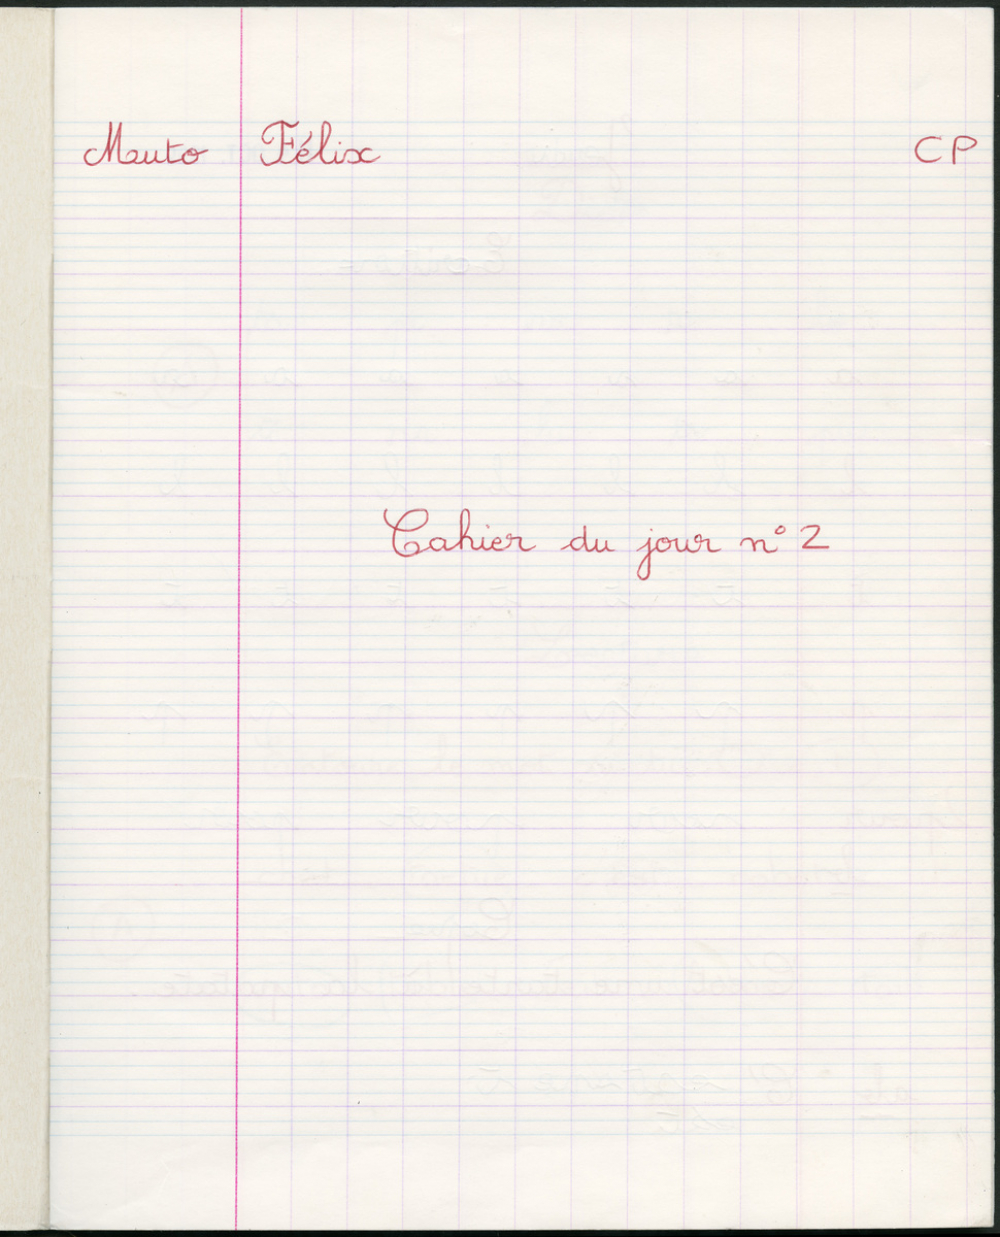 Mauto Félix CP
Cahier du jour n° 2